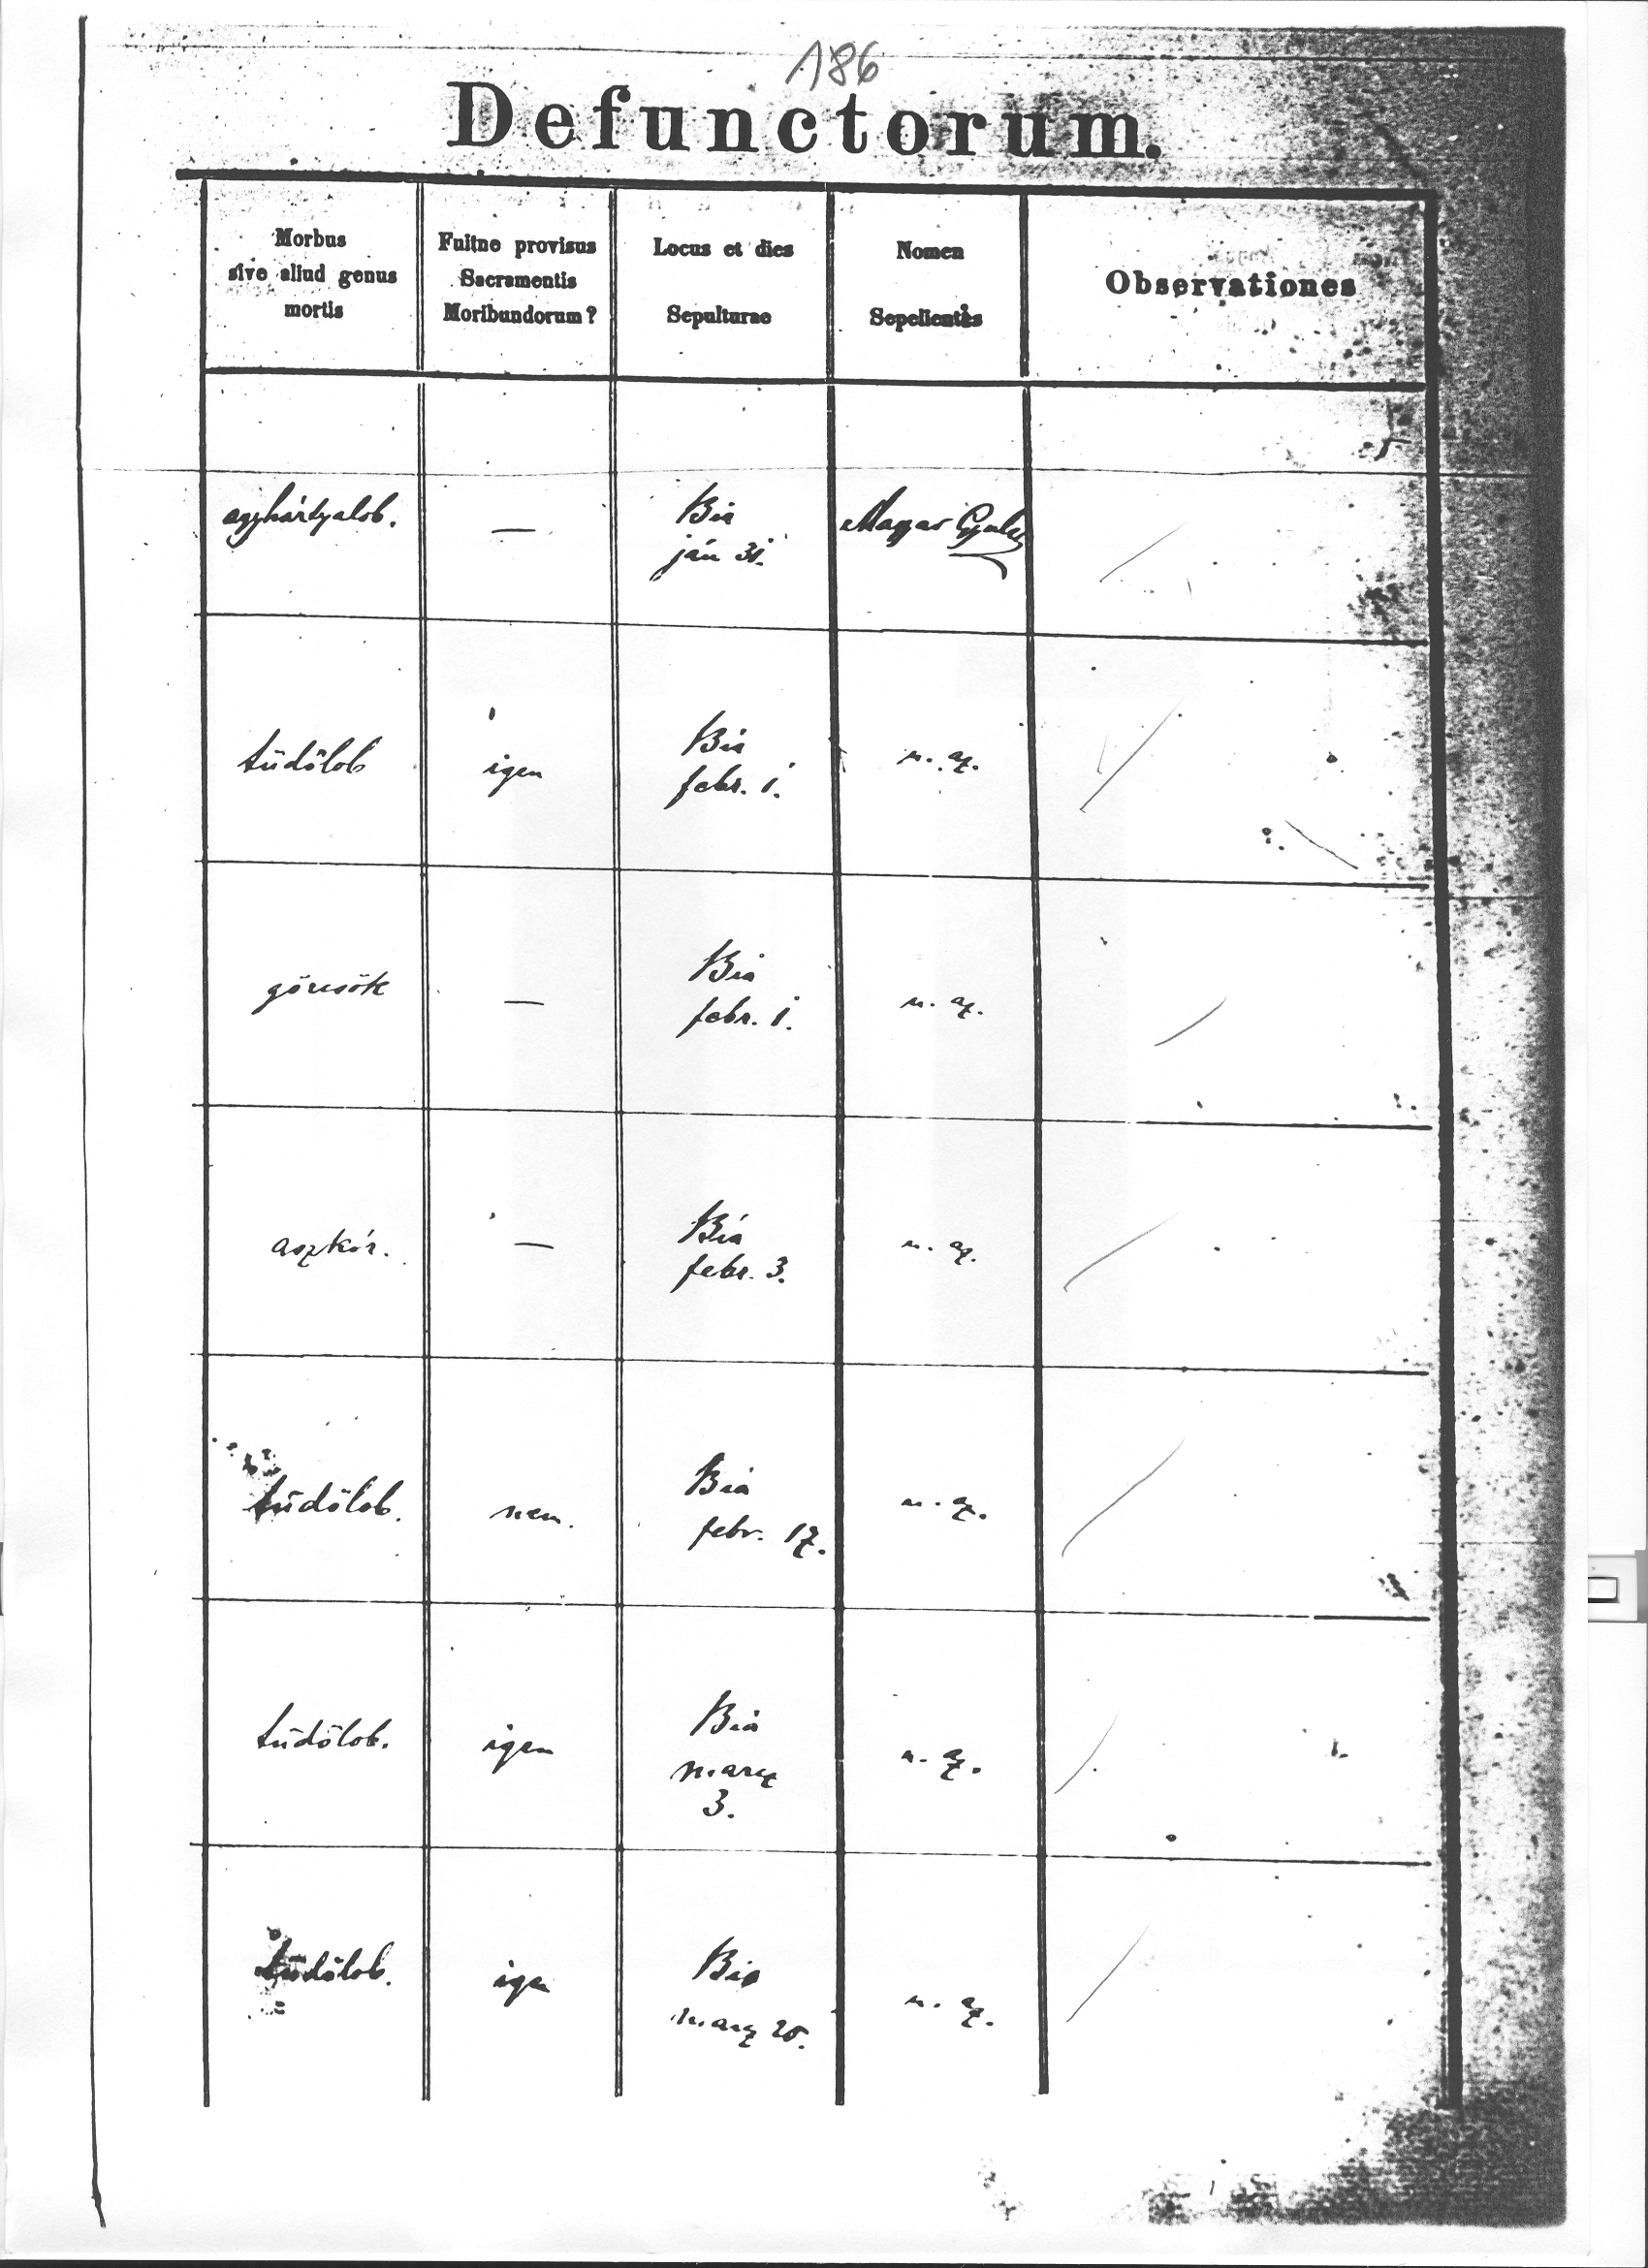 186
Defunctorum.
Morbus
sive aliud genus
mortis
Fuitne provisus
Sacramentis
Moribundorum?
Locus et dies
Sepulturae
Nomen
Sepelientis
Observationes
agyhártyalob.
—
Bia
ján 31.
Magyar Gyula
tüdőlob
igen
Bia
febr. 1.
u. az.
görcsök
—
Bia
febr. 1.
u. az.
aszkór.
—
Bia
febr. 3.
u. az.
tüdőlob.
nem.
Bia
febr. 17.
u. az.
tüdőlob.
igen
Bia
marcz
3.
u. az.
tüdőlob.
igen
Bia
marz
u. az.